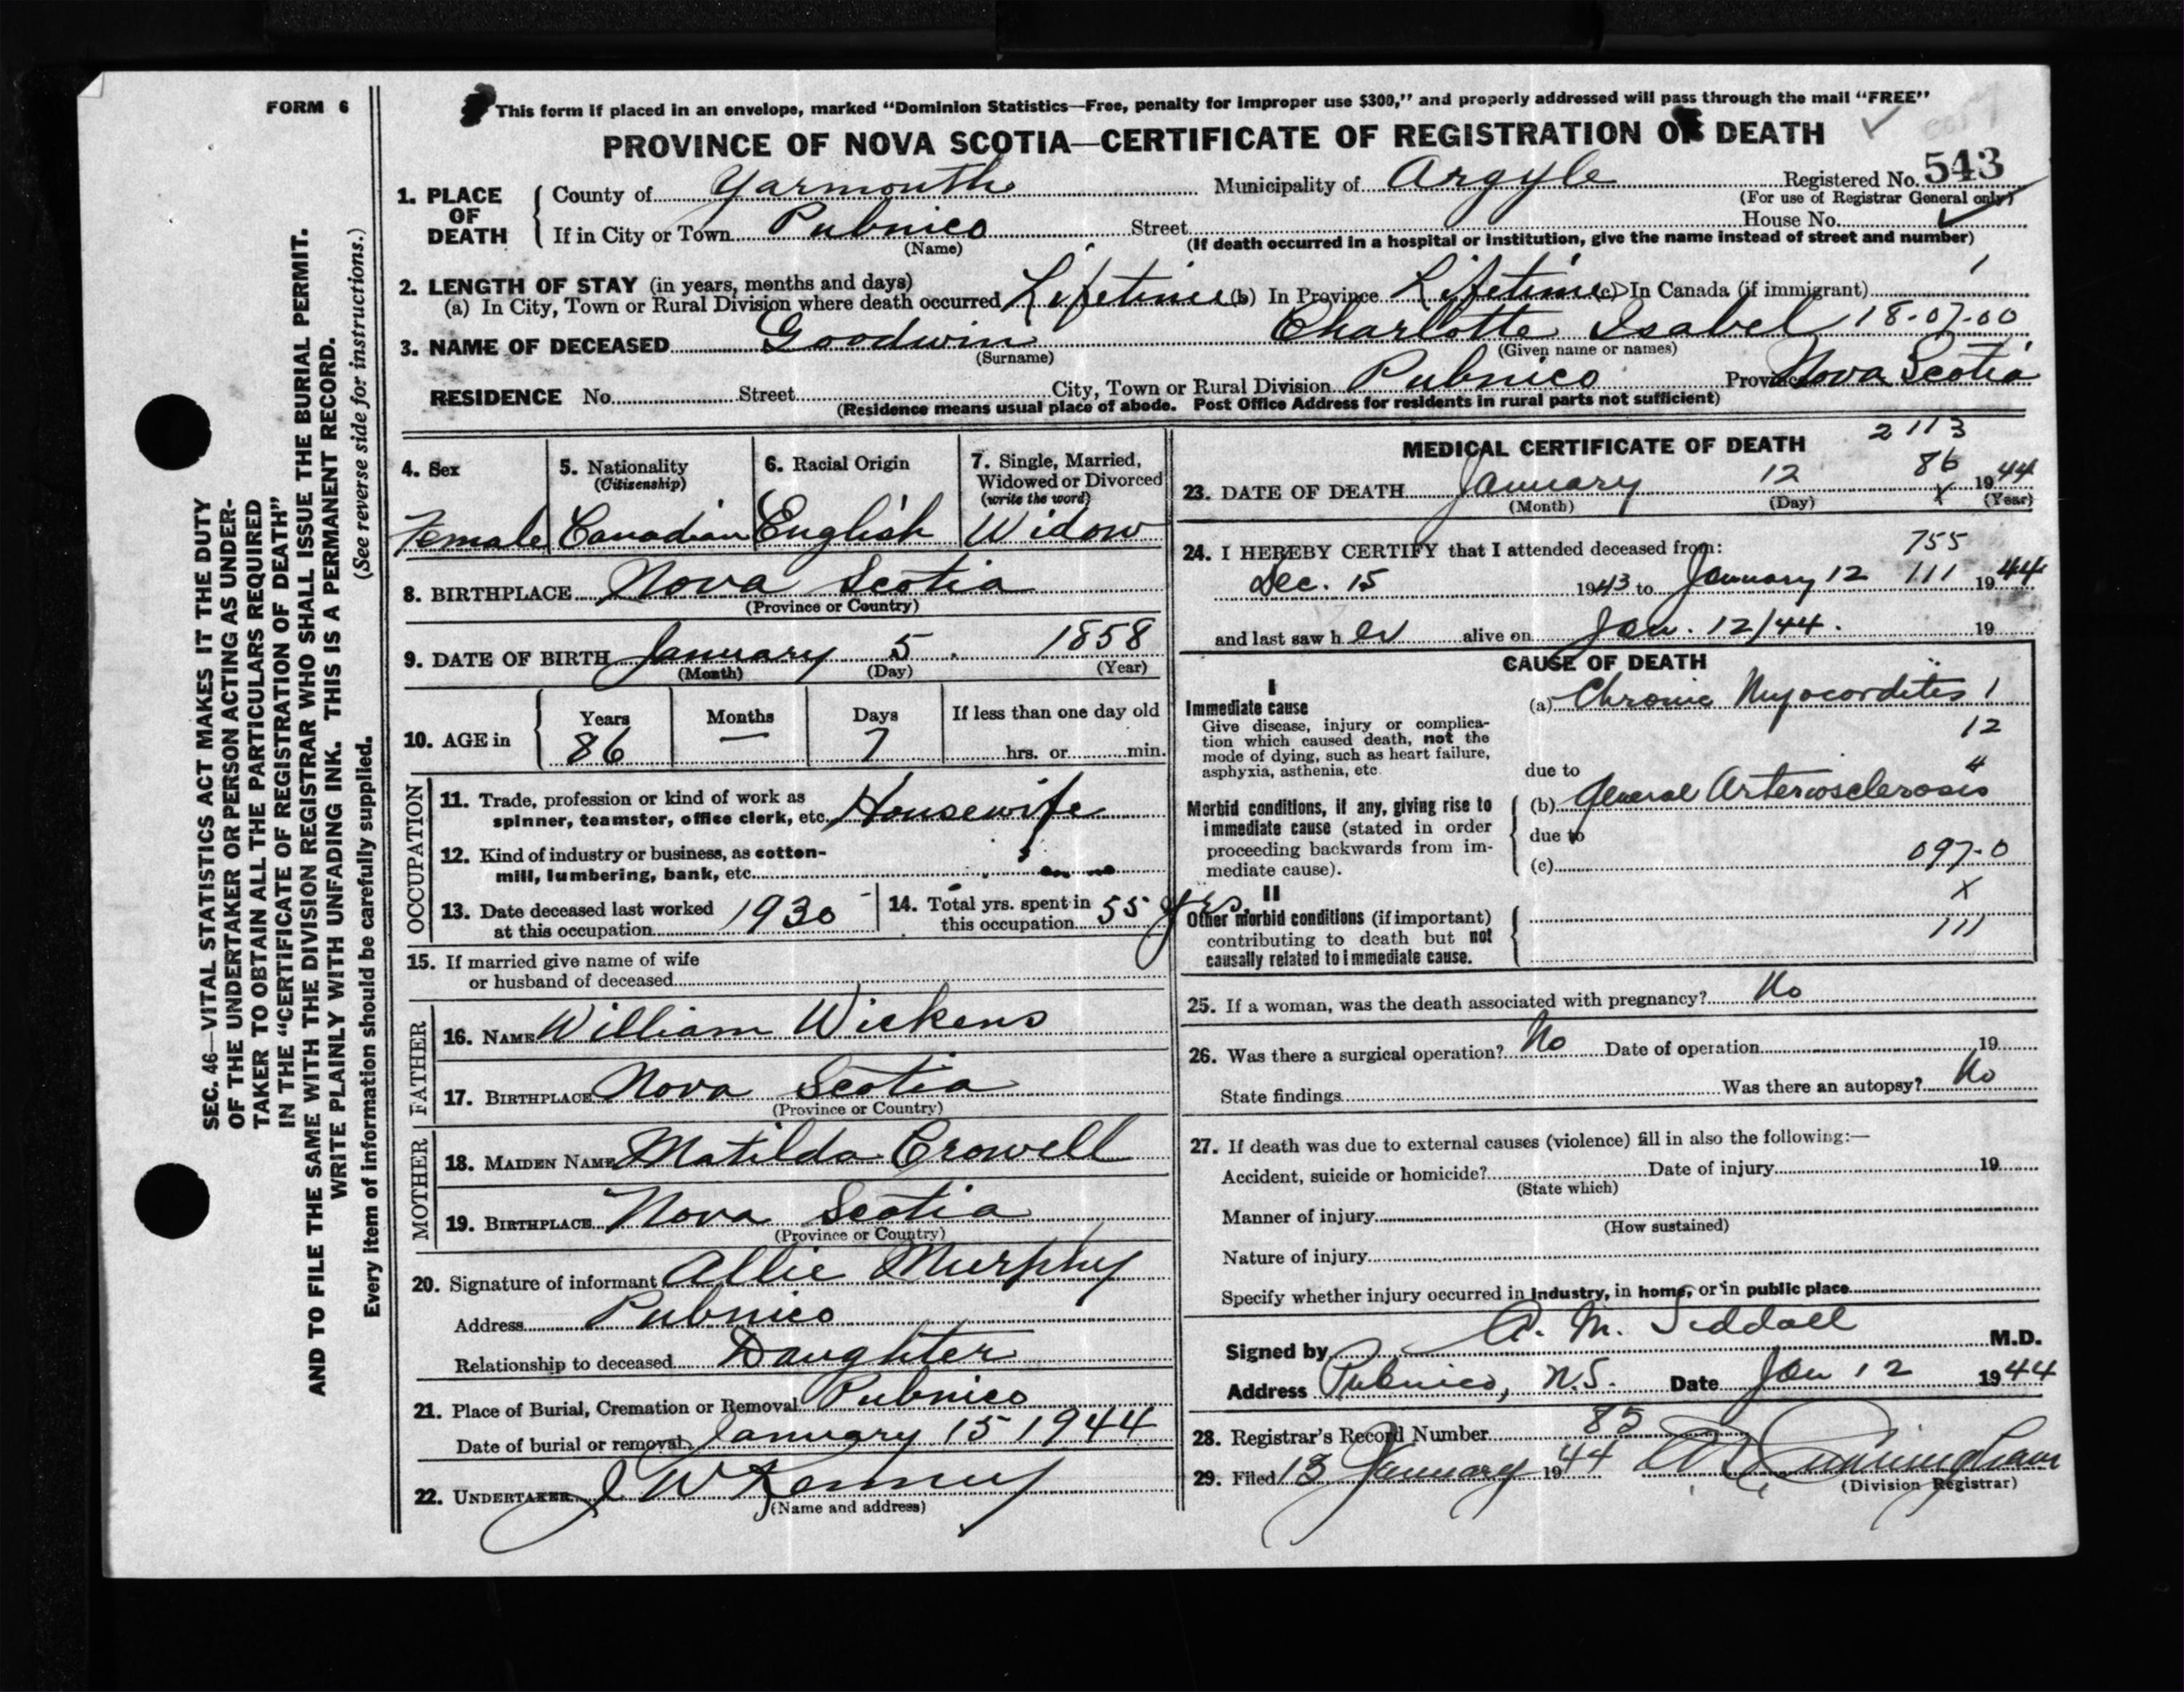 FORM 6
This form if placed in an envelope, marked "Dominion Statistics—Free, penalty for improper use $300," and properly addressed will pass through the mail "FREE"
PROVINCE OF NOVA SCOTIA—CERTIFICATE OF REGISTRATION OF DEATH
1. PLACE OF DEATH
County of Yarmouth Municipality of Argyle Registered No. 543
(For use of Registrar General only)
If in City or Town Pubnico Street House No.
(Name) (If death occurred in a hospital or institution, give the name instead of street and number)
2. LENGTH OF STAY (in years, months and days)
(a) In City, Town or Rural Division where death occurred Lifetime (b) In Province Lifetime (c) In Canada (if immigrant)
3. NAME OF DECEASED Goodwin Charlotte Isabel 18-07-00
(Surname) (Given name or names)
RESIDENCE No. Street City, Town or Rural Division Pubnico Province Nova Scotia
(Residence means usual place of abode. Post Office Address for residents in rural parts not sufficient)
4. Sex
Female
5. Nationality
(Citizenship)
Canadian
6. Racial Origin
English
7. Single, Married, Widowed or Divorced
(write the word)
Widow
8. BIRTHPLACE Nova Scotia
(Province or Country)
9. DATE OF BIRTH January 5 1858
(Month) (Day) (Year)
10. AGE in
Years Months Days If less than one day old
86 — 7 hrs. or min.
OCCUPATION
11. Trade, profession or kind of work as
spinner, teamster, office clerk, etc. Housewife
12. Kind of industry or business, as cotton-
mill, lumbering, bank, etc.
13. Date deceased last worked
at this occupation 1930
14. Total yrs. spent in
this occupation 55 yrs.
15. If married give name of wife
or husband of deceased
FATHER
16. NAME William Wickens
17. BIRTHPLACE Nova Scotia
(Province or Country)
MOTHER
18. MAIDEN NAME Matilda Crowell
19. BIRTHPLACE Nova Scotia
(Province or Country)
20. Signature of informant Allie Murphy
Address Pubnico
Relationship to deceased Daughter
21. Place of Burial, Cremation or Removal Pubnico
Date of burial or removal January 15 1944
22. UNDERTAKER J W Kenney
(Name and address)
MEDICAL CERTIFICATE OF DEATH
2113
86
X
23. DATE OF DEATH January 12 1944
(Month) (Day) (Year)
24. I HEREBY CERTIFY that I attended deceased from:
755
Dec. 15 1943 to January 12 111 1944
and last saw h er alive on Jan. 12/44. 19
CAUSE OF DEATH
I
Immediate cause
Give disease, injury or complica-
tion which caused death, not the
mode of dying, such as heart failure,
asphyxia, asthenia, etc.
(a) Chronic Myocorditis 1
12
4
due to
Morbid conditions, if any, giving rise to
immediate cause (stated in order
proceeding backwards from im-
mediate cause).
(b) General Arteriosclerosis
due to
(c) 097-0
X
II
Other morbid conditions (if important)
contributing to death but not
causally related to immediate cause.
111
25. If a woman, was the death associated with pregnancy? No
26. Was there a surgical operation? No Date of operation 19
State findings Was there an autopsy? No
27. If death was due to external causes (violence) fill in also the following:—
Accident, suicide or homicide? Date of injury 19
(State which)
Manner of injury
(How sustained)
Nature of injury
Specify whether injury occurred in industry, in home, or in public place
Signed by A. M. Siddall M.D.
Address Pubnico, N.S. Date Jan 12 1944
28. Registrar's Record Number 85
29. Filed 13 January 1944 Cunningham
(Division Registrar)
SEC. 46—VITAL STATISTICS ACT MAKES IT THE DUTY
OF THE UNDERTAKER OR PERSON ACTING AS UNDER-
TAKER TO OBTAIN ALL THE PARTICULARS REQUIRED
IN THE "CERTIFICATE OF REGISTRATION OF DEATH"
AND TO FILE THE SAME WITH THE DIVISION REGISTRAR WHO SHALL ISSUE THE BURIAL PERMIT.
WRITE PLAINLY WITH UNFADING INK. THIS IS A PERMANENT RECORD.
Every item of information should be carefully supplied. (See reverse side for instructions.)